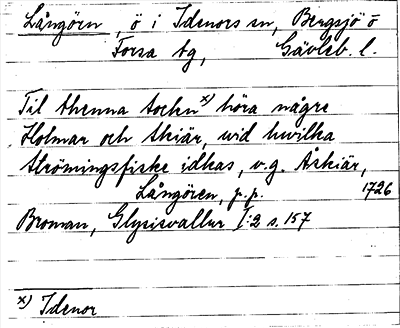 Långören, ö i Idenors sn, Bergsjö o
Forsa tg, Gävleb. l.
Til thenna sochn x) höra någre
Holmar och skiär, wid hwilka
strömingsfiske idkas, v.g. Åskiär,
Långören, p.p. 1726
Broman, Glysisvallur I:2 s. 157
x) Idenor